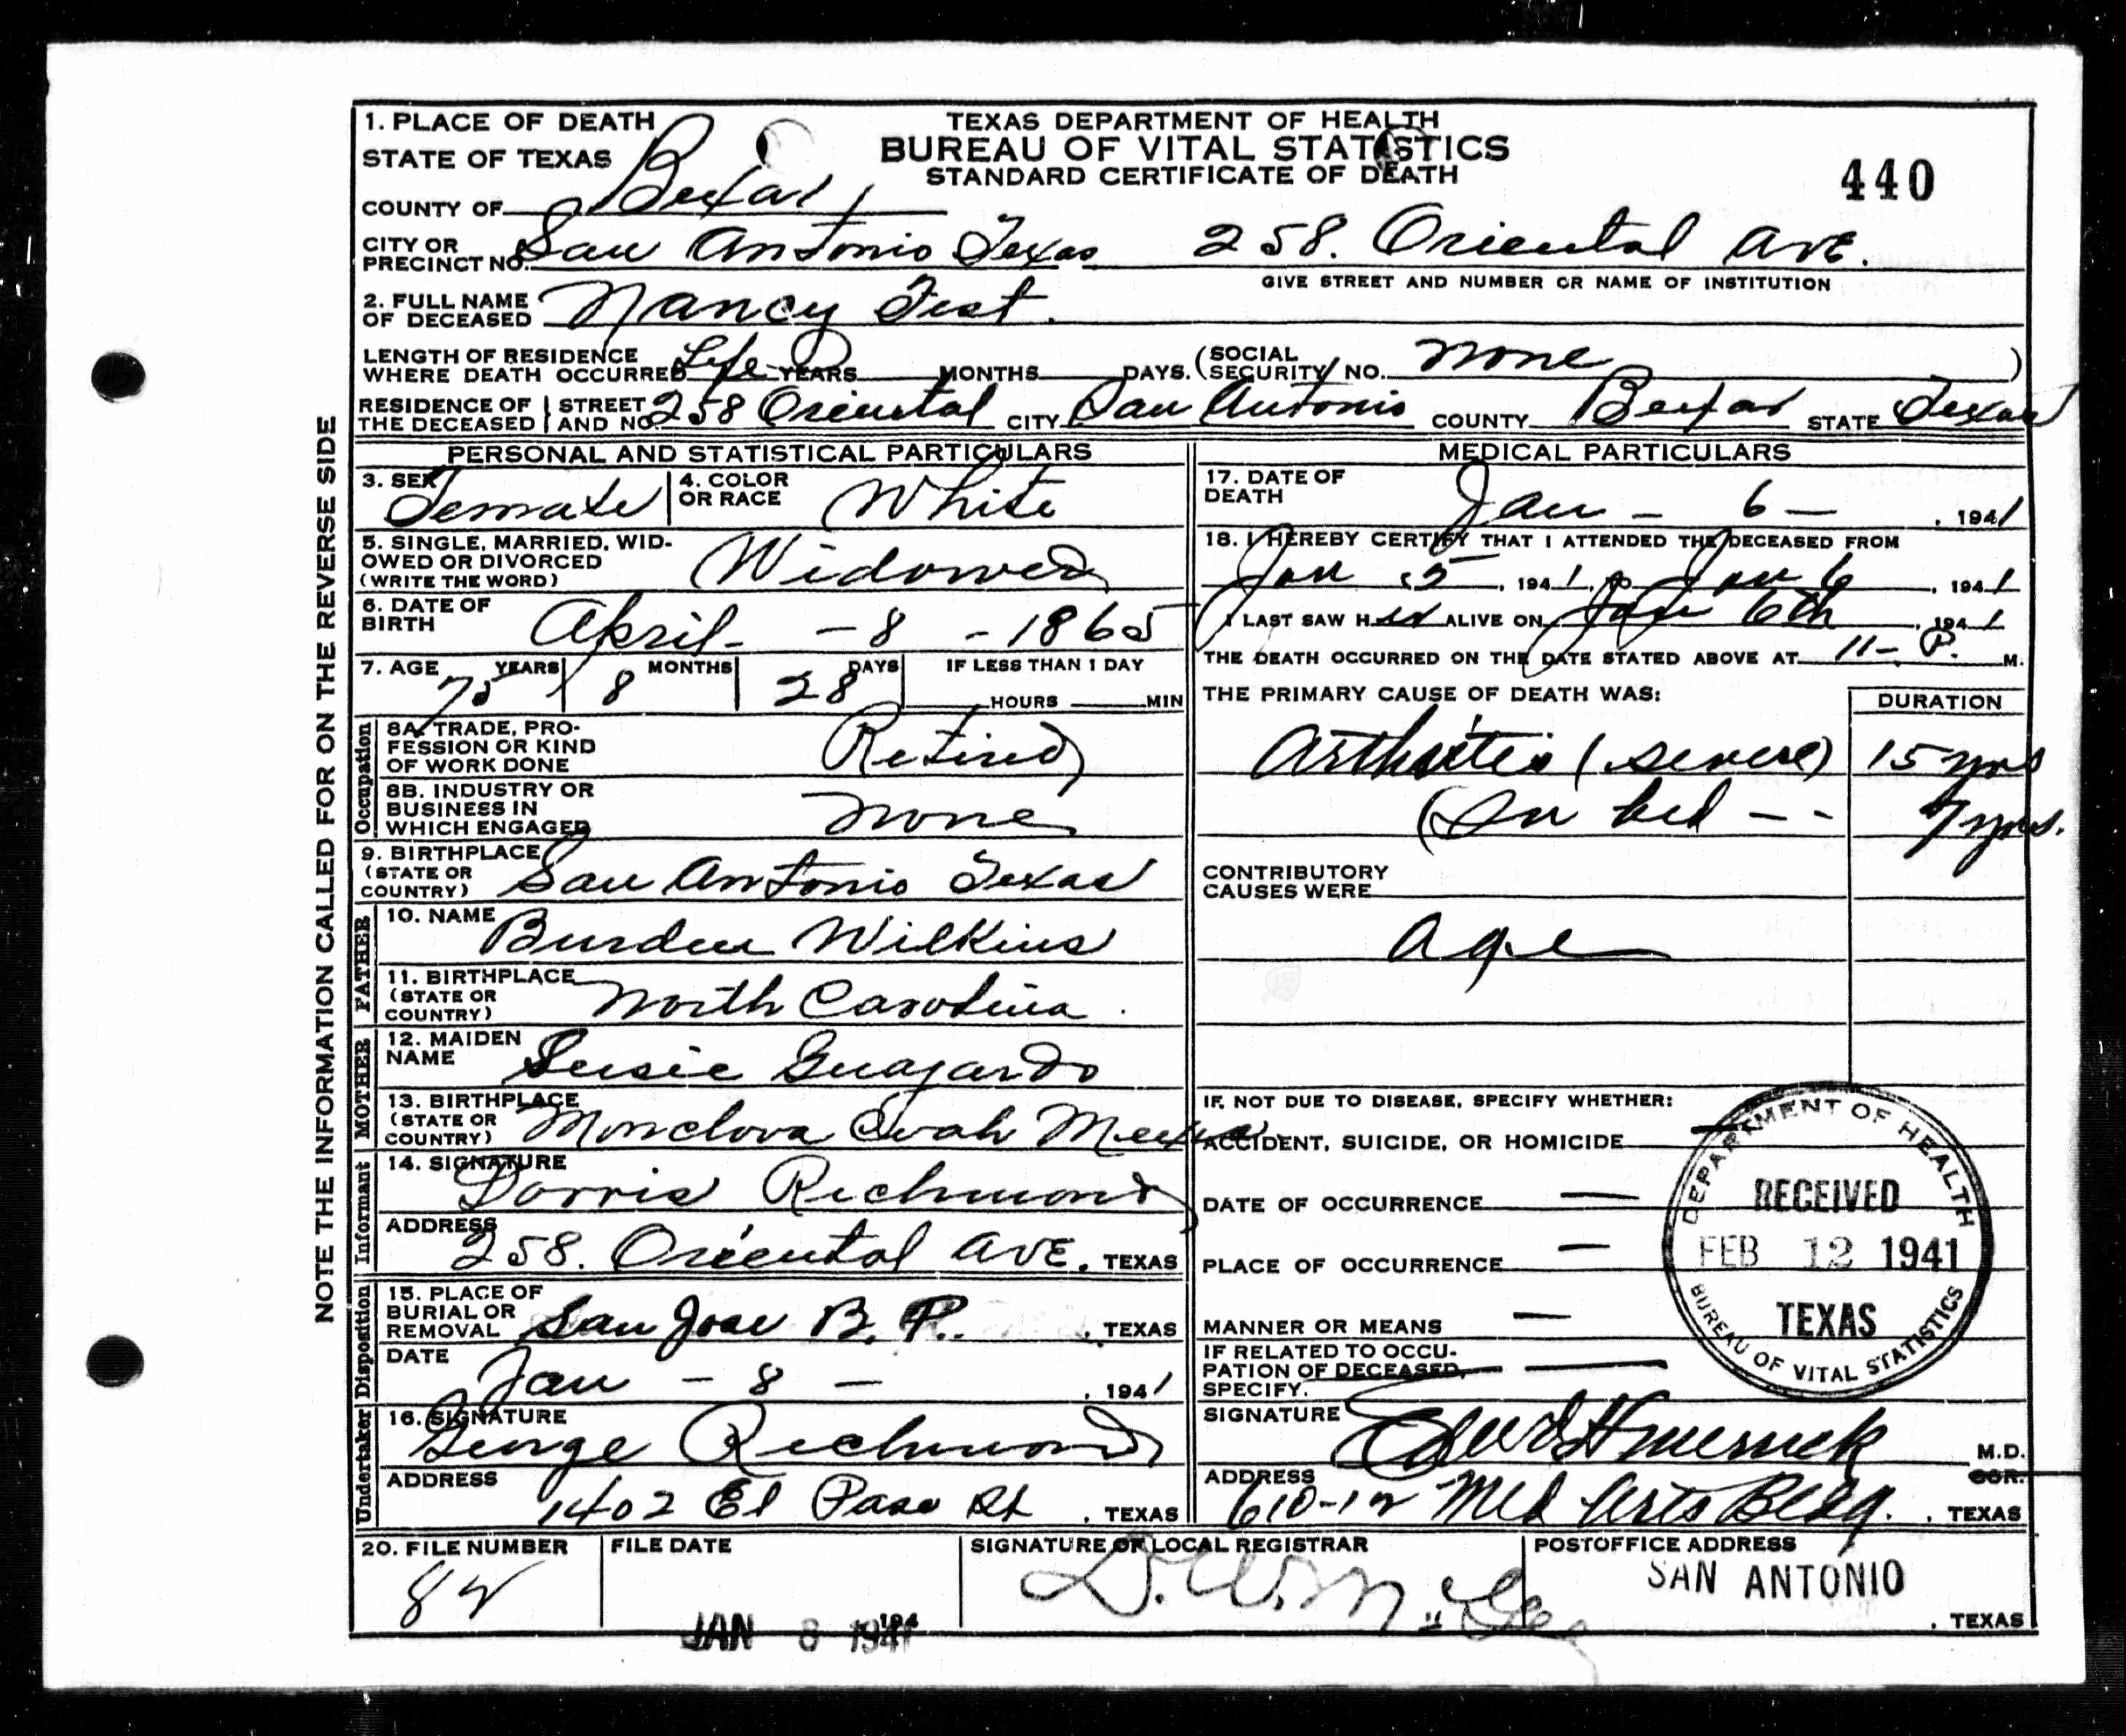 1. PLACE OF DEATH
TEXAS DEPARTMENT OF HEALTH
STATE OF TEXAS
BUREAU OF VITAL STATISTICS
STANDARD CERTIFICATE OF DEATH
440
COUNTY OF Bexar
CITY OR PRECINCT NO. San Antonio Texas 258. Oriental Ave.
GIVE STREET AND NUMBER OR NAME OF INSTITUTION
2. FULL NAME OF DECEASED Nancy Test.
LENGTH OF RESIDENCE WHERE DEATH OCCURRED Life YEARS MONTHS DAYS. (SOCIAL SECURITY NO. None )
RESIDENCE OF THE DECEASED STREET AND NO. 258 Oriental CITY San Antonio COUNTY Bexar STATE Texas
NOTE THE INFORMATION CALLED FOR ON THE REVERSE SIDE
PERSONAL AND STATISTICAL PARTICULARS
3. SEX Female
4. COLOR OR RACE White
5. SINGLE, MARRIED, WIDOWED OR DIVORCED (WRITE THE WORD) Widowed
6. DATE OF BIRTH April - - 8 - 1865
7. AGE 75 YEARS 8 MONTHS 28 DAYS IF LESS THAN 1 DAY HOURS MIN
Occupation
8A. TRADE, PROFESSION OR KIND OF WORK DONE Retired
8B. INDUSTRY OR BUSINESS IN WHICH ENGAGED None
9. BIRTHPLACE (STATE OR COUNTRY) San Antonio Texas
FATHER
10. NAME Burden Wilkins
11. BIRTHPLACE (STATE OR COUNTRY) North Carolina.
MOTHER
12. MAIDEN NAME Susie Guajardo
13. BIRTHPLACE (STATE OR COUNTRY) Monclova Coah Mexico
Informant
14. SIGNATURE Dorris Richmond
ADDRESS 258. Oriental Ave. TEXAS
Disposition
15. PLACE OF BURIAL OR REMOVAL San Jose B. P. , TEXAS
DATE Jan - 8 - , 1941
Undertaker
16. SIGNATURE George Richmond
ADDRESS 1402 El Paso St , TEXAS
MEDICAL PARTICULARS
17. DATE OF DEATH Jan - 6 - , 1941
18. I HEREBY CERTIFY THAT I ATTENDED THE DECEASED FROM
Jan 5 , 1941, to Jan 6 , 1941
I LAST SAW HER ALIVE ON Jan 6th , 1941
THE DEATH OCCURRED ON THE DATE STATED ABOVE AT 11- P. M.
THE PRIMARY CAUSE OF DEATH WAS:
DURATION
Arthritis (severe) 15 yrs
(In bed - - 7 yrs.
CONTRIBUTORY CAUSES WERE
Age
IF NOT DUE TO DISEASE, SPECIFY WHETHER:
ACCIDENT, SUICIDE, OR HOMICIDE —
DATE OF OCCURRENCE —
PLACE OF OCCURRENCE —
MANNER OR MEANS —
IF RELATED TO OCCUPATION OF DECEASED, SPECIFY. —
DEPARTMENT OF HEALTH
RECEIVED
FEB 12 1941
TEXAS
BUREAU OF VITAL STATISTICS
SIGNATURE M.D.
COR.
ADDRESS 610-12 Med Arts Bldg. , TEXAS
20. FILE NUMBER 82
FILE DATE JAN 8 1941 194
SIGNATURE OF LOCAL REGISTRAR D. W.
POSTOFFICE ADDRESS SAN ANTONIO , TEXAS